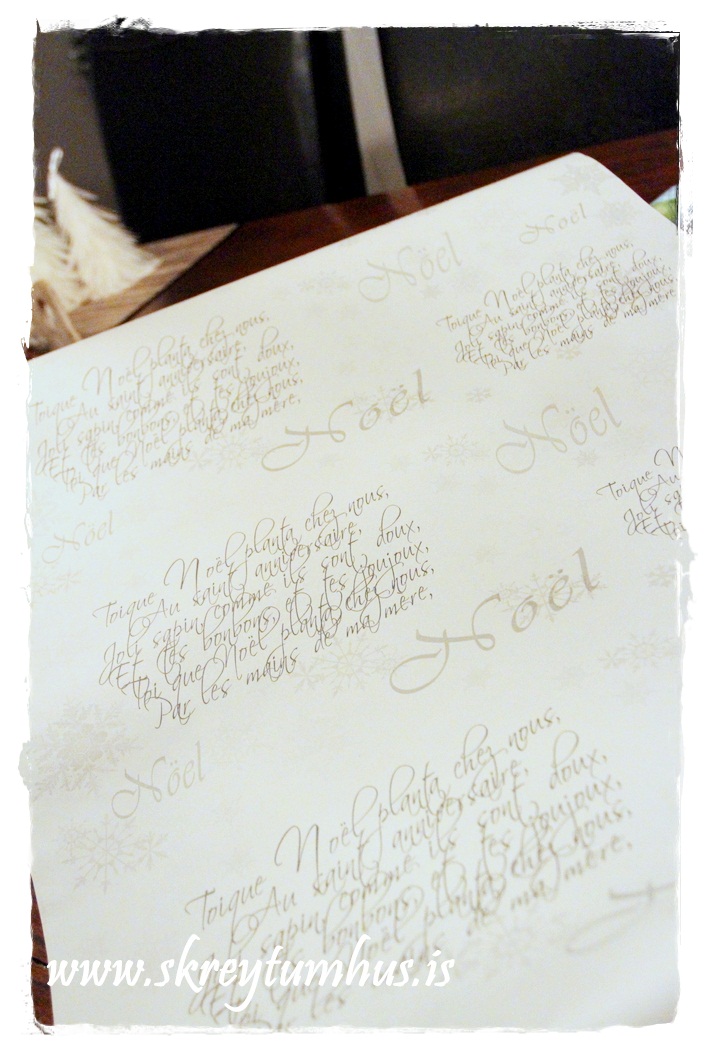 Noël
Noël
Toique Noël planta chez nous,
Au saint anniversaire,
Joli sapin comme ils sont doux,
Et tes bonbons, et tes joujoux,
Toi que Noël planta chez nous,
Par les mains de ma mère,
Toique Noël planta chez nous,
Au saint anniversaire,
Joli sapin comme ils sont doux,
Et tes bonbons, et tes joujoux,
Toi que Noël planta chez nous,
Par les mains de ma mère,
Nöël
Nöël
Nöël
Toique N
Au
Joli sa
Toique Noël planta chez nous,
Au saint anniversaire,
Joli sapin comme ils sont doux,
Et tes bonbons, et tes joujoux,
Toi que Noël planta chez nous,
Par les mains de ma mère,
Nöël
Nöël
Toique Noël planta chez nous,
Au saint anniversaire,
sapin comme ils sont doux,
bonbons, et tes joujoux,
que Noël planta chez nous,
les mains de ma mère,
www.skreytumhus.is